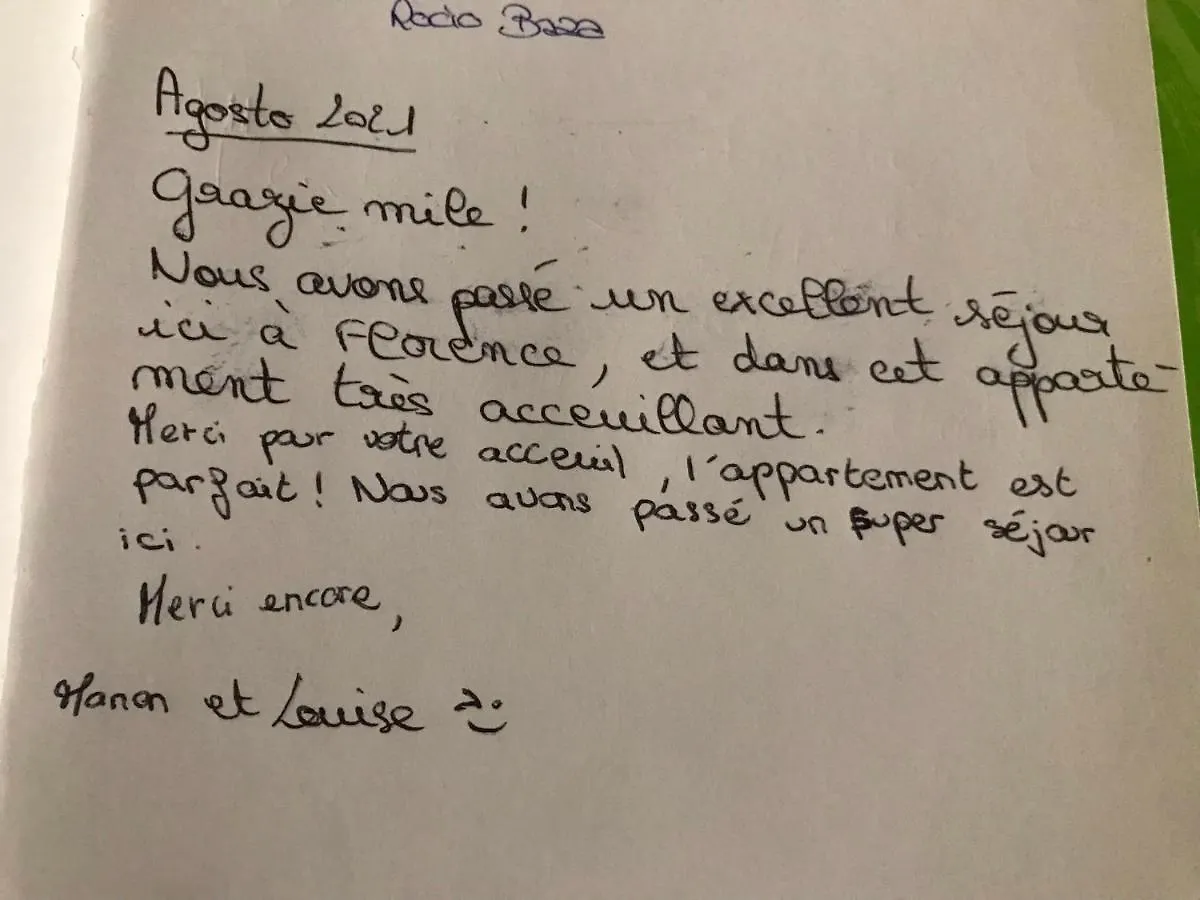 Rocio Baza
Agosto 2021
Grazie mile !
Nous avons passé un excellent séjour
ici à Florence, et dans cet apparte-
ment très acceuillant.
Merci par votre acceuil, l'appartement est
parfait ! Nous avons passé un super séjour
ici.
Merci encore,
Manon et Louise